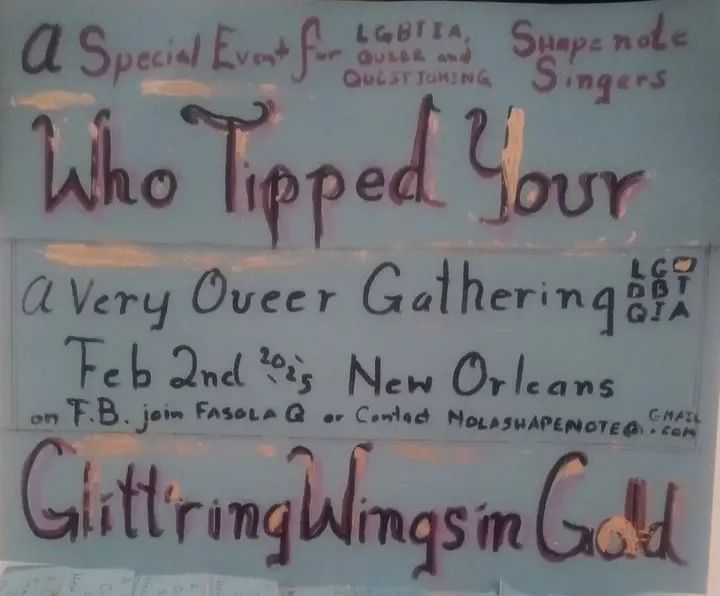 a Special Event for LGBTIA, QUEER and QUESTIONING Shape note Singers
Who Tipped Your
a Very Queer Gathering LG DBT QIA
Feb 2nd 2025 New Orleans
on F.B. join FASOLA Q or Contact NOLASHAPENOTE@GMAIL.COM
Glitt'ring Wings in Gold